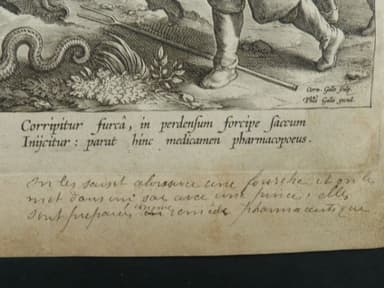 Corn. Galle sculp.
Phls Galle excud.
Corripitur furcâ, in perdensum forcipe saccum
Inijcitur: parat hinc medicamen pharmacopoeus.
on les saisit alors avec une fourche et on le
met dans un sac avec une pince, elles
sont préparées comme remède pharmaceutique